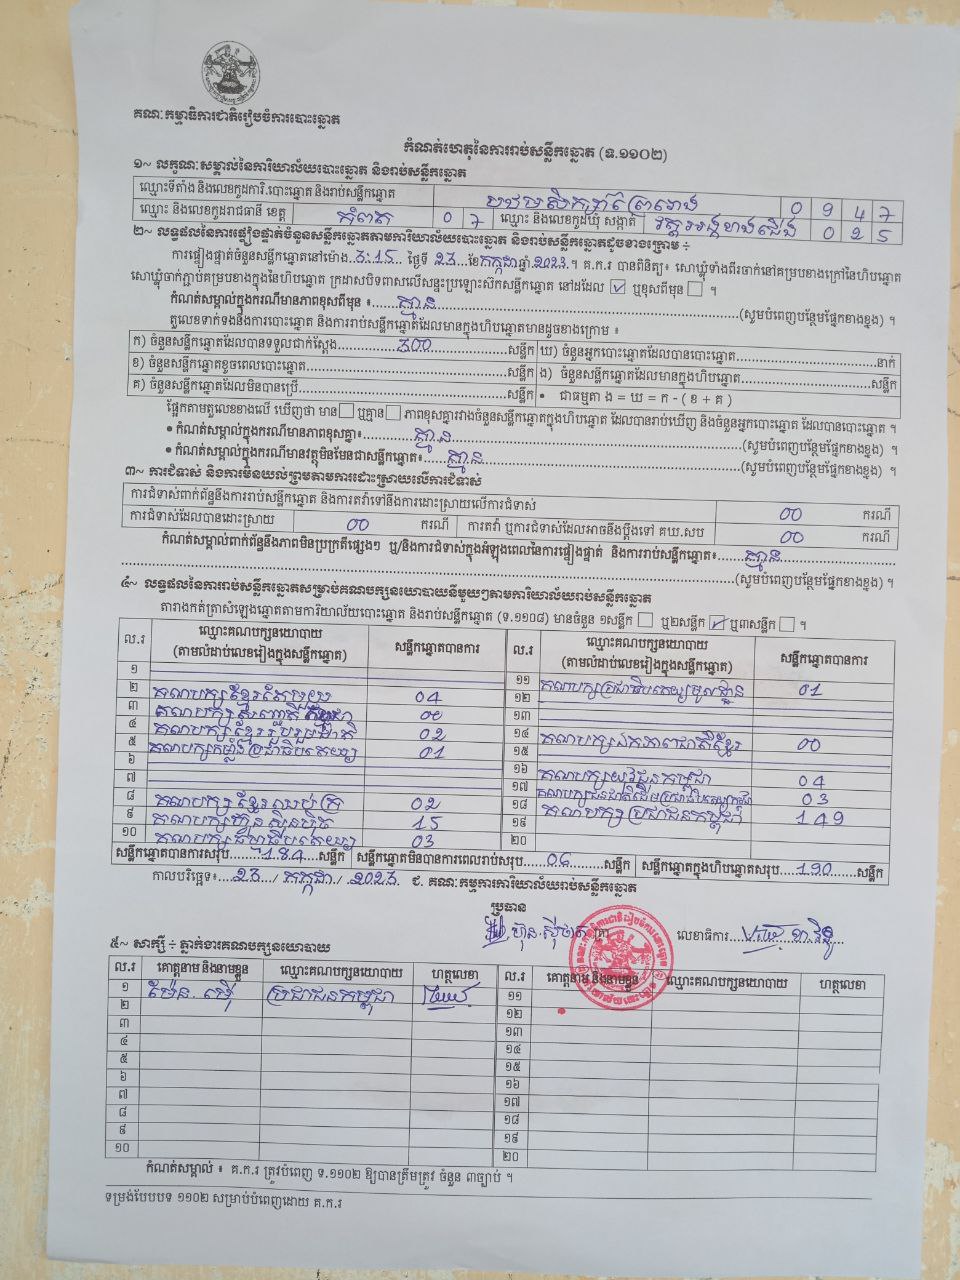 គណៈកម្មាធិការជាតិរៀបចំការបោះឆ្នោត
កំណត់ហេតុនៃការរាប់សន្លឹកឆ្នោត (ទ.១១០២)
១~ លក្ខណៈសម្គាល់នៃការិយាល័យបោះឆ្នោត និងរាប់សន្លឹកឆ្នោត
ឈ្មោះទីតាំង និងលេខកូដការិ.បោះឆ្នោត និងរាប់សន្លឹកឆ្នោត 0 9 4 7
ឈ្មោះ និងលេខកូដរាជធានី ខេត្ត កំពត 0 7 ឈ្មោះ និងលេខកូដឃុំ សង្កាត់ 0 2 5
២~ លទ្ធផលនៃការផ្ទៀងផ្ទាត់ចំនួនសន្លឹកឆ្នោតតាមការិយាល័យបោះឆ្នោត និងរាប់សន្លឹកឆ្នោតដូចខាងក្រោម ÷
ការផ្ទៀងផ្ទាត់ចំនួនសន្លឹកឆ្នោតនៅម៉ោង 3:15 ថ្ងៃទី 23 ខែ កក្កដា ឆ្នាំ 2023 ។ គ.ក.រ បានពិនិត្យ៖ សោឃ្លុំទាំងពីរចាក់នៅគម្របខាងក្រៅនៃហិបឆ្នោត
សោឃ្លុំចាក់ភ្ជាប់គម្របខាងក្នុងនៃហិបឆ្នោត ក្រដាសបិទពាសលើសន្ទះប្រឡោះស៊កសន្លឹកឆ្នោត នៅដដែល ☑ ឬខុសពីមុន ☐ ។
កំណត់សម្គាល់ក្នុងករណីមានភាពខុសពីមុន ៖ គ្មាន (សូមបំពេញបន្ថែមផ្នែកខាងខ្នង) ។
តួលេខទាក់ទងនឹងការបោះឆ្នោត និងការរាប់សន្លឹកឆ្នោតដែលមានក្នុងហិបឆ្នោតមានដូចខាងក្រោម ៖
ក) ចំនួនសន្លឹកឆ្នោតដែលបានទទួលជាក់ស្ដែង 300 សន្លឹក ឃ) ចំនួនអ្នកបោះឆ្នោតដែលបានបោះឆ្នោត នាក់
ខ) ចំនួនសន្លឹកឆ្នោតខូចពេលបោះឆ្នោត សន្លឹក ង) ចំនួនសន្លឹកឆ្នោតដែលមានក្នុងហិបឆ្នោត សន្លឹក
គ) ចំនួនសន្លឹកឆ្នោតដែលមិនបានប្រើ សន្លឹក • ជាធម្មតា ង = ឃ = ក - ( ខ + គ )
ផ្អែកតាមតួលេខខាងលើ ឃើញថា មាន ☐ ឬគ្មាន ☐ ភាពខុសគ្នារវាងចំនួនសន្លឹកឆ្នោតក្នុងហិបឆ្នោត ដែលបានរាប់ឃើញ និងចំនួនអ្នកបោះឆ្នោត ដែលបានបោះឆ្នោត ។
• កំណត់សម្គាល់ក្នុងករណីមានភាពខុសគ្នា៖ គ្មាន (សូមបំពេញបន្ថែមផ្នែកខាងខ្នង) ។
• កំណត់សម្គាល់ក្នុងករណីមានវត្ថុមិនមែនជាសន្លឹកឆ្នោត៖ គ្មាន (សូមបំពេញបន្ថែមផ្នែកខាងខ្នង) ។
៣~ ការជំទាស់ និងការមិនយល់ព្រមតាមការដោះស្រាយលើការជំទាស់
ការជំទាស់ពាក់ព័ន្ធនឹងការរាប់សន្លឹកឆ្នោត និងការតវ៉ាទៅនឹងការដោះស្រាយលើការជំទាស់ 00 ករណី
ការជំទាស់ដែលបានដោះស្រាយ 00 ករណី ការតវ៉ា ឬការជំទាស់ដែលអាចនឹងប្ដឹងទៅ គឃ.សប 00 ករណី
កំណត់សម្គាល់ពាក់ព័ន្ធនឹងភាពមិនប្រក្រតីផ្សេងៗ ឬ/និងការជំទាស់ក្នុងអំឡុងពេលនៃការផ្ទៀងផ្ទាត់ និងការរាប់សន្លឹកឆ្នោត៖ គ្មាន
(សូមបំពេញបន្ថែមផ្នែកខាងខ្នង) ។
៤~ លទ្ធផលនៃការរាប់សន្លឹកឆ្នោតសម្រាប់គណបក្សនយោបាយនីមួយៗតាមការិយាល័យរាប់សន្លឹកឆ្នោត
តារាងកត់ត្រាសំឡេងឆ្នោតតាមការិយាល័យបោះឆ្នោត និងរាប់សន្លឹកឆ្នោត (ទ.១១០៨) មានចំនួន ១សន្លឹក ☐ ឬ២សន្លឹក ☑ ឬ៣សន្លឹក ☐ ។
ល.រ ឈ្មោះគណបក្សនយោបាយ (តាមលំដាប់លេខរៀងក្នុងសន្លឹកឆ្នោត) សន្លឹកឆ្នោតបានការ ល.រ ឈ្មោះគណបក្សនយោបាយ (តាមលំដាប់លេខរៀងក្នុងសន្លឹកឆ្នោត) សន្លឹកឆ្នោតបានការ
១
២ គណបក្សខ្មែរតែមួយ 04
៣ គណបក្ស
៤ គណបក្សខ្មែររួបរួមជាតិ 02
៥ គណបក្សកម្លាំងប្រជាធិបតេយ្យ 01
៦
៧
៨ គណបក្សខ្មែរឈប់ក្រ 02
៩ គណបក្សហ៊្វុនស៊ិនប៉ិច 15
១០ គណបក្សធម្មាធិបតេយ្យ 03
១១ គណបក្សប្រជាធិបតេយ្យមូលដ្ឋាន 01
១២
១៣
១៤ គណបក្សឯកភាពជាតិខ្មែរ 00
១៥
១៦ គណបក្សយុវជនកម្ពុជា 04
១៧ គណបក្សជនជាតិដើមប្រជាធិបតេយ្យកម្ពុជា 03
១៨ គណបក្សប្រជាជនកម្ពុជា 149
១៩
២០
សន្លឹកឆ្នោតបានការសរុប 184 សន្លឹក សន្លឹកឆ្នោតមិនបានការពេលរាប់សរុប 06 សន្លឹក សន្លឹកឆ្នោតក្នុងហិបឆ្នោតសរុប 190 សន្លឹក
កាលបរិច្ឆេទ៖ 23 / កក្កដា / 2023 ជ. គណៈកម្មការការិយាល័យរាប់សន្លឹកឆ្នោត
ប្រធាន
លេខាធិការ
៥~ សាក្សី ÷ ភ្នាក់ងារគណបក្សនយោបាយ
ល.រ គោត្តនាម និងនាមខ្លួន ឈ្មោះគណបក្សនយោបាយ ហត្ថលេខា ល.រ គោត្តនាម និងនាមខ្លួន ឈ្មោះគណបក្សនយោបាយ ហត្ថលេខា
១ ប្រជាជនកម្ពុជា ១១
២ ១២
៣ ១៣
៤ ១៤
៥ ១៥
៦ ១៦
៧ ១៧
៨ ១៨
៩ ១៩
១០ ២០
កំណត់សម្គាល់ ៖ គ.ក.រ ត្រូវបំពេញ ទ.១១០២ ឱ្យបានត្រឹមត្រូវ ចំនួន ៣ច្បាប់ ។
ទម្រង់បែបបទ ១១០២ សម្រាប់បំពេញដោយ គ.ក.រ